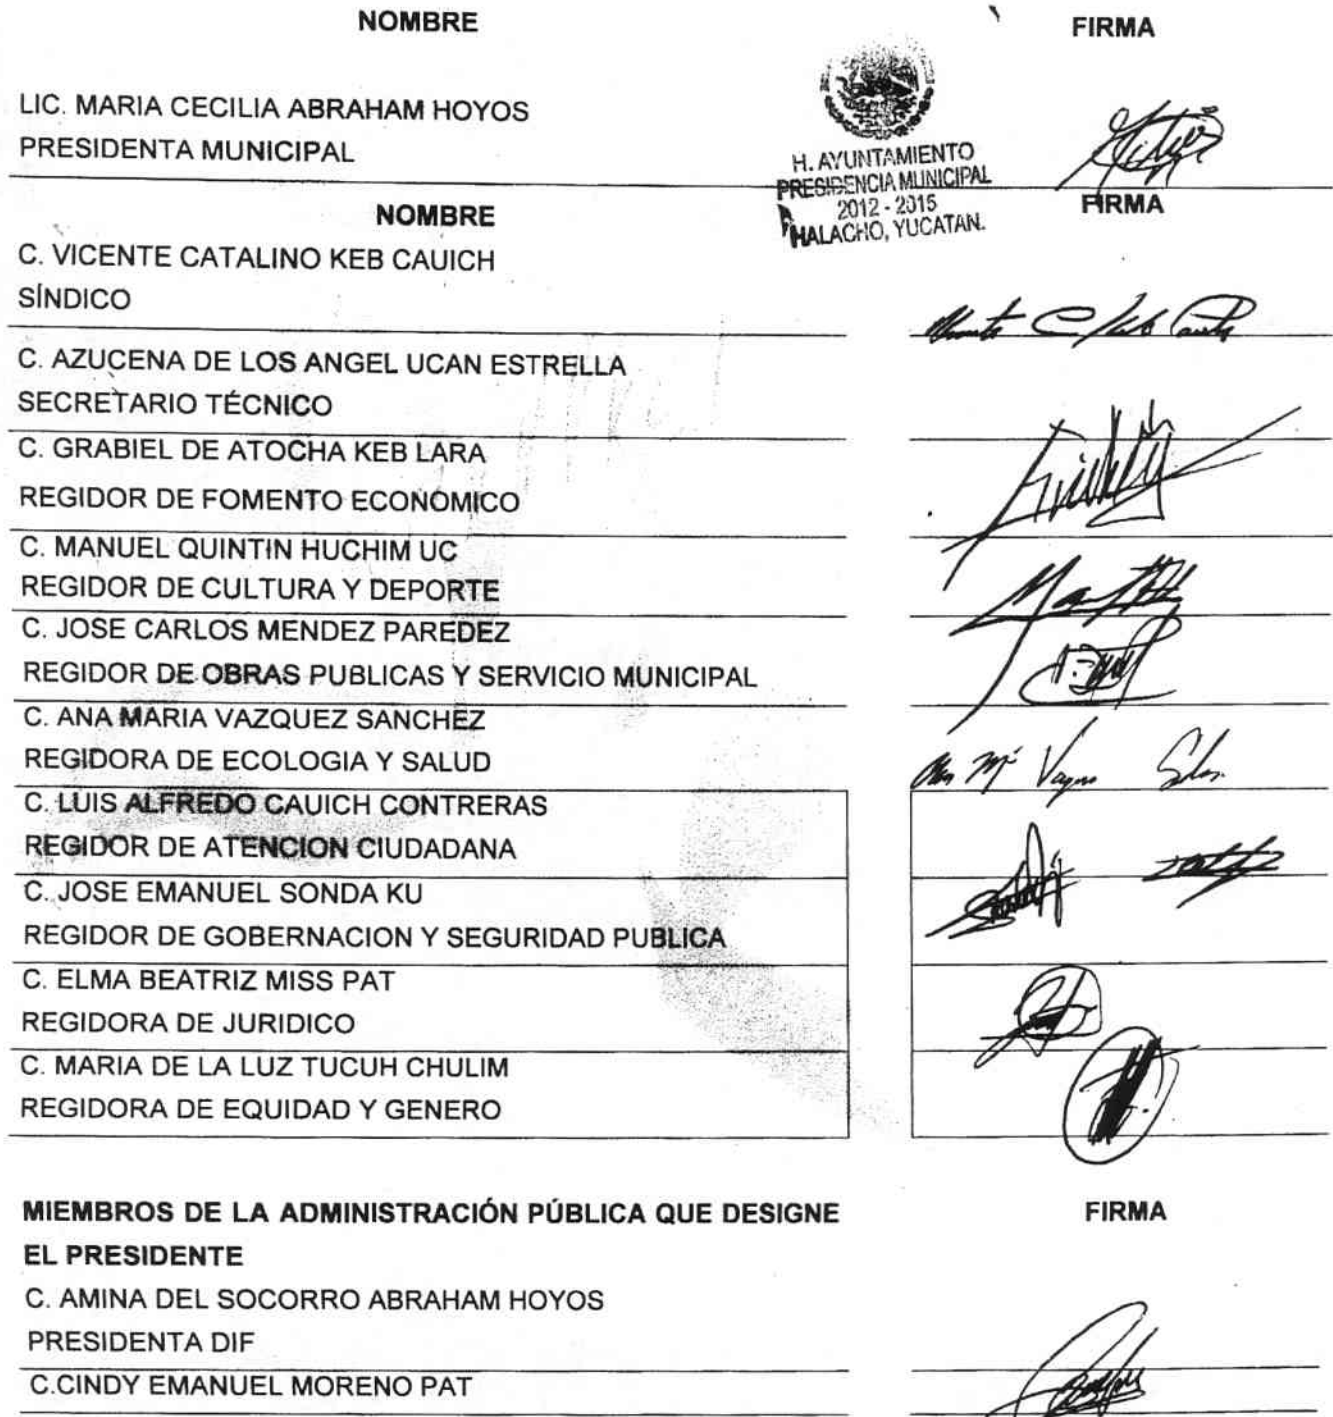 NOMBRE FIRMA
LIC. MARIA CECILIA ABRAHAM HOYOS
PRESIDENTA MUNICIPAL
H. AYUNTAMIENTO
PRESIDENCIA MUNICIPAL
2012 - 2015
HALACHO, YUCATAN.
NOMBRE FIRMA
C. VICENTE CATALINO KEB CAUICH
SÍNDICO
C. AZUCENA DE LOS ANGEL UCAN ESTRELLA
SECRETARIO TÉCNICO
C. GRABIEL DE ATOCHA KEB LARA
REGIDOR DE FOMENTO ECONÓMICO
C. MANUEL QUINTIN HUCHIM UC
REGIDOR DE CULTURA Y DEPORTE
C. JOSE CARLOS MENDEZ PAREDEZ
REGIDOR DE OBRAS PUBLICAS Y SERVICIO MUNICIPAL
C. ANA MARIA VAZQUEZ SANCHEZ
REGIDORA DE ECOLOGIA Y SALUD
C. LUIS ALFREDO CAUICH CONTRERAS
REGIDOR DE ATENCION CIUDADANA
C. JOSE EMANUEL SONDA KU
REGIDOR DE GOBERNACION Y SEGURIDAD PUBLICA
C. ELMA BEATRIZ MISS PAT
REGIDORA DE JURIDICO
C. MARIA DE LA LUZ TUCUH CHULIM
REGIDORA DE EQUIDAD Y GENERO
MIEMBROS DE LA ADMINISTRACIÓN PÚBLICA QUE DESIGNE FIRMA
EL PRESIDENTE
C. AMINA DEL SOCORRO ABRAHAM HOYOS
PRESIDENTA DIF
C.CINDY EMANUEL MORENO PAT